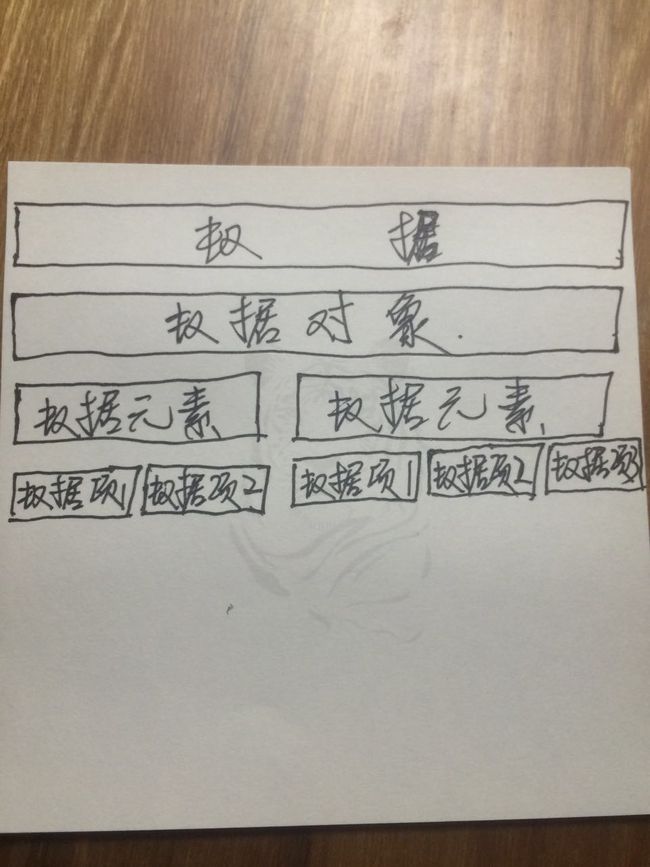 数 据
数据对象.
数据元素 数据元素
数据项1 数据项2 数据项1 数据项2 数据项3